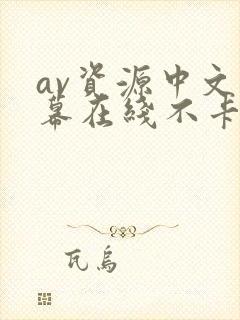 av資源中文
幕在綫不卡
瓦烏